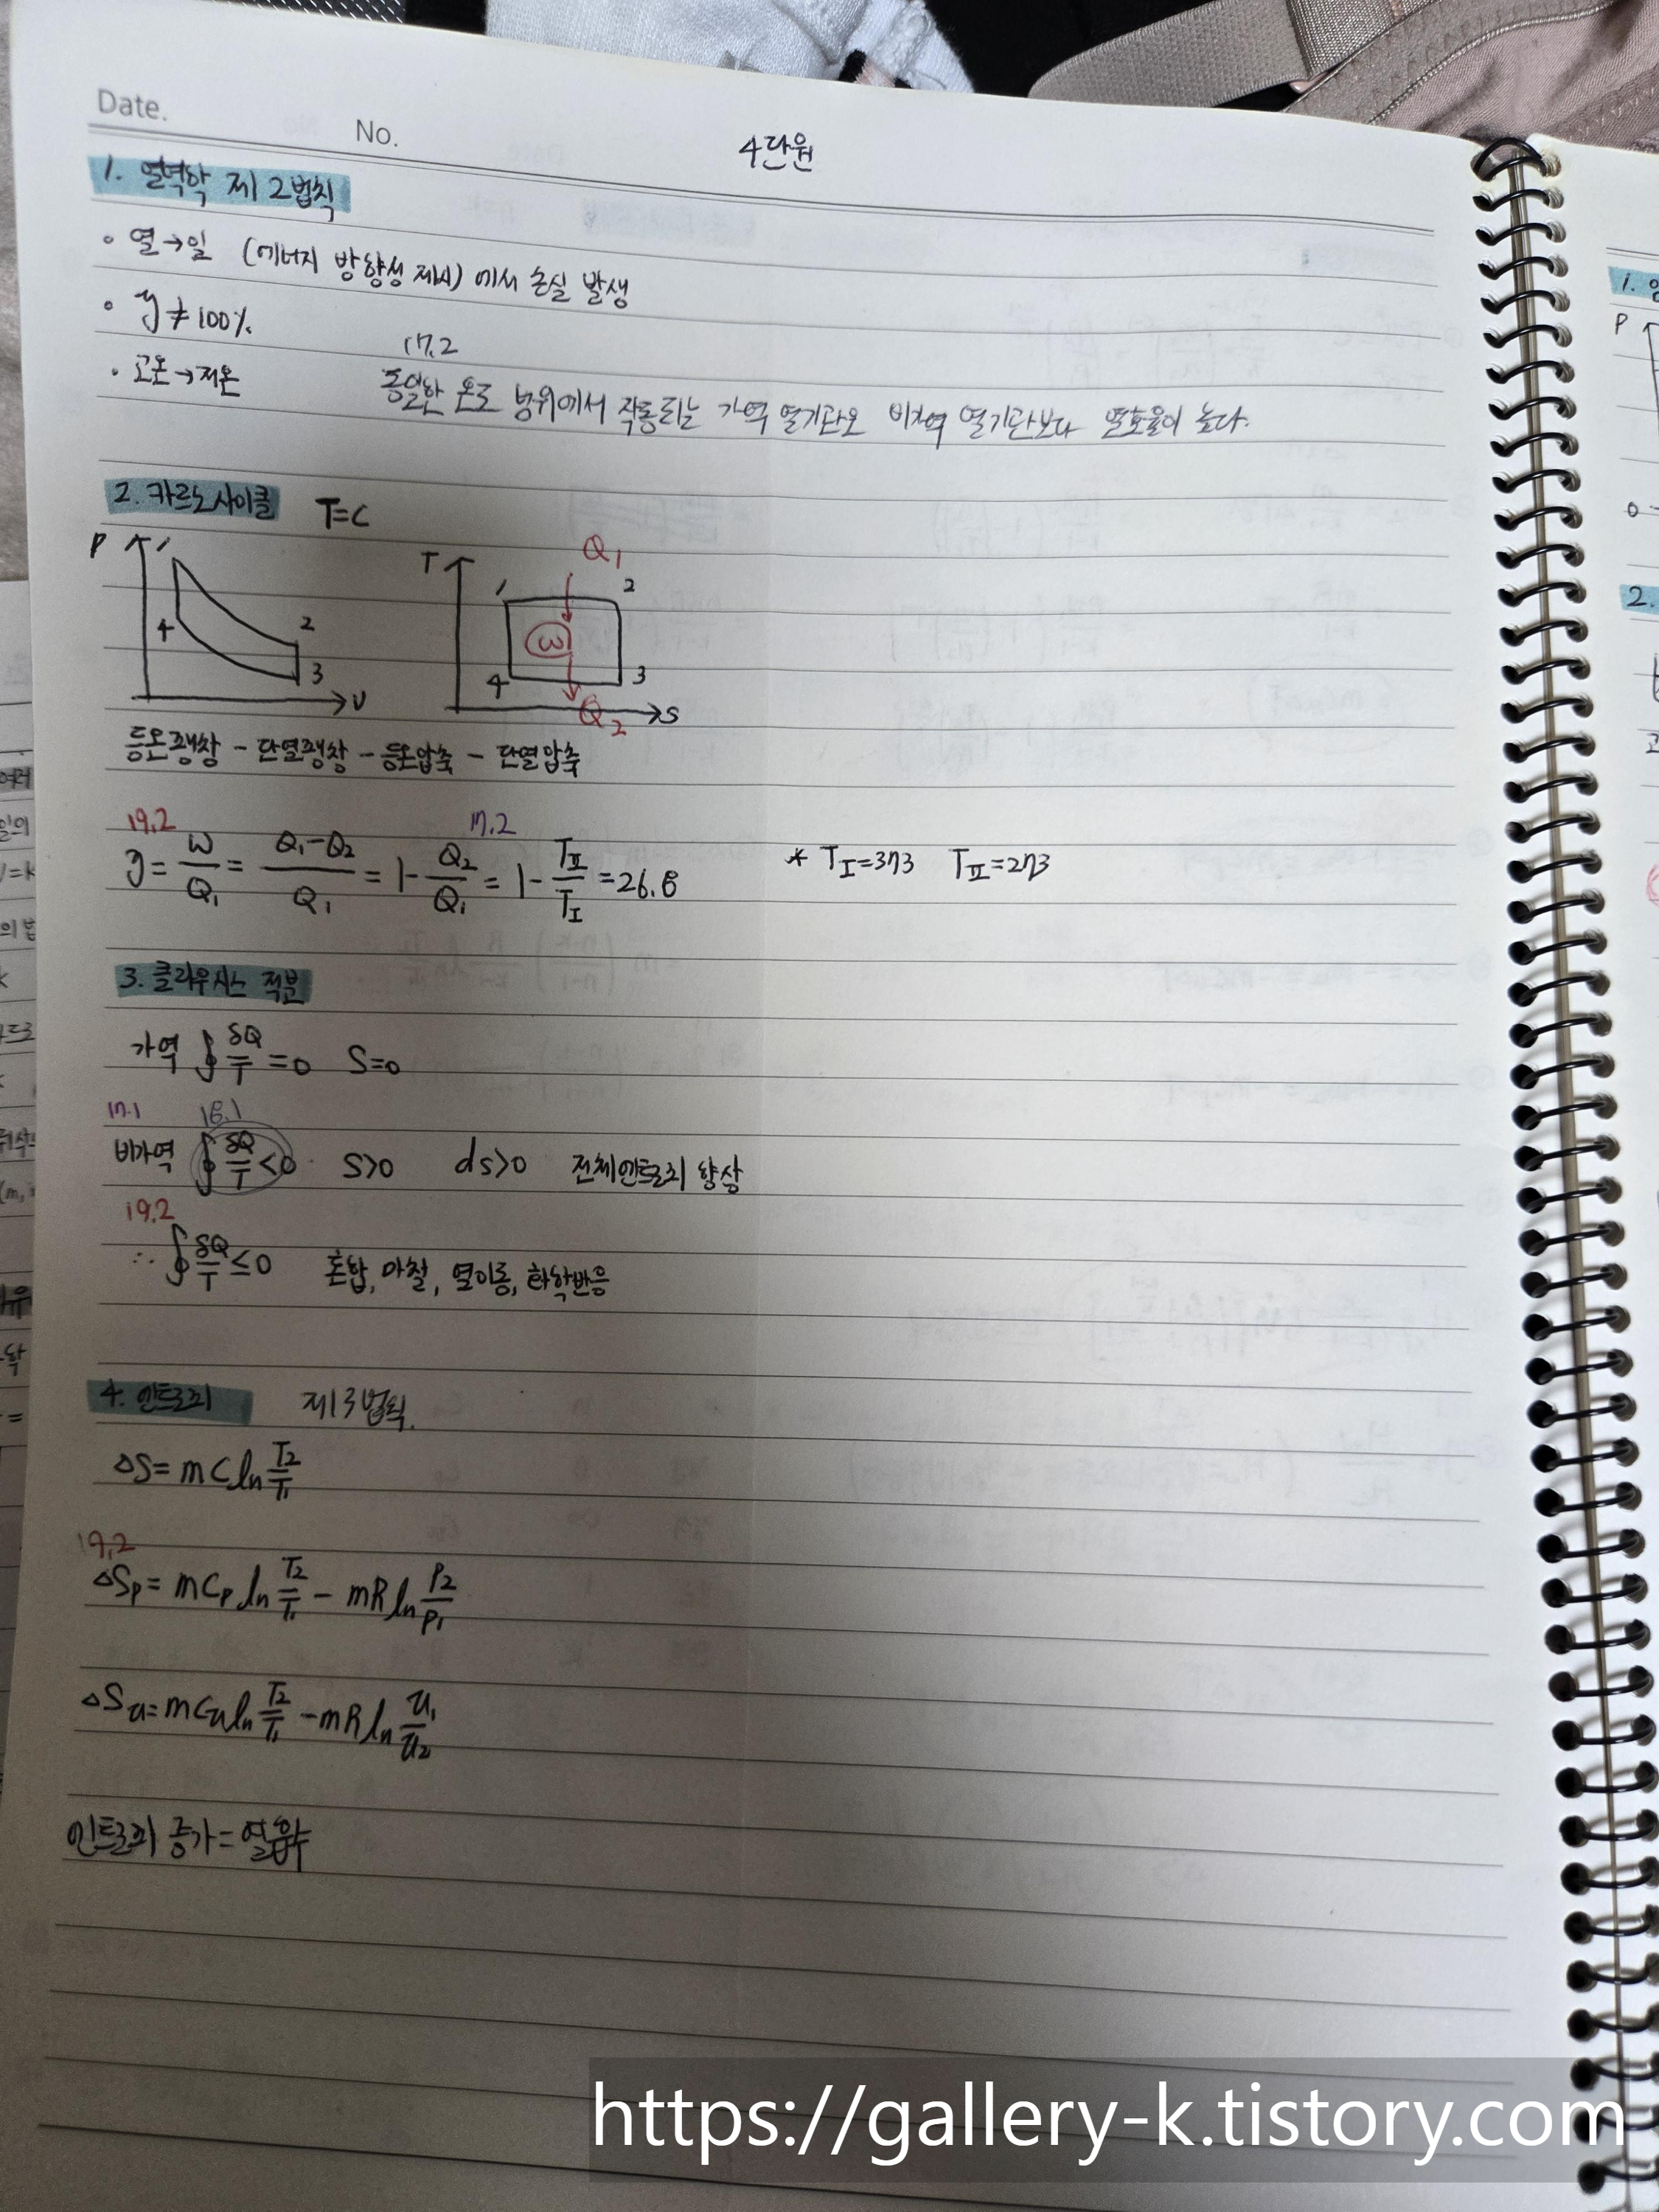 Date.
No.
4단원
1. 열역학 제2법칙
◦ 열→일 (에너지 방향성 제시)에서 손실 발생
◦ η≠100%
17.2
· 고온→저온 동일한 온도 범위에서 작동되는 가역 열기관은 비가역 열기관보다 열효율이 높다.
2. 카르노사이클 T=C
P 1 2 3 4 v
T 1 2 3 4 S Q₁ W Q₂
등온팽창 - 단열팽창 - 등온압축 - 단열압축
19.2 17.2
η = W/Q₁ = (Q₁-Q₂)/Q₁ = 1-Q₂/Q₁ = 1-TⅡ/TⅠ = 26.8 * TⅠ=373 TⅡ=273
3. 클라우시스 적분
가역 ∮δQ/T=0 S=0
17.1 18.1
비가역 ∮δQ/T<0 S>0 ds>0 전체엔트로피 향상
19.2
∴ ∮δQ/T≤0 혼합, 마찰, 열이동, 화학반응
4. 엔트로피 제3법칙.
△S=mCln T₂/T₁
19.2
△Sp=mCp ln T₂/T₁ - mR ln P₂/P₁
△Sv=mCv ln T₂/T₁ - mR ln v₁/v₂
엔트로피 증가=열흡수
1.
P
0
2.
https://gallery-k.tistory.com